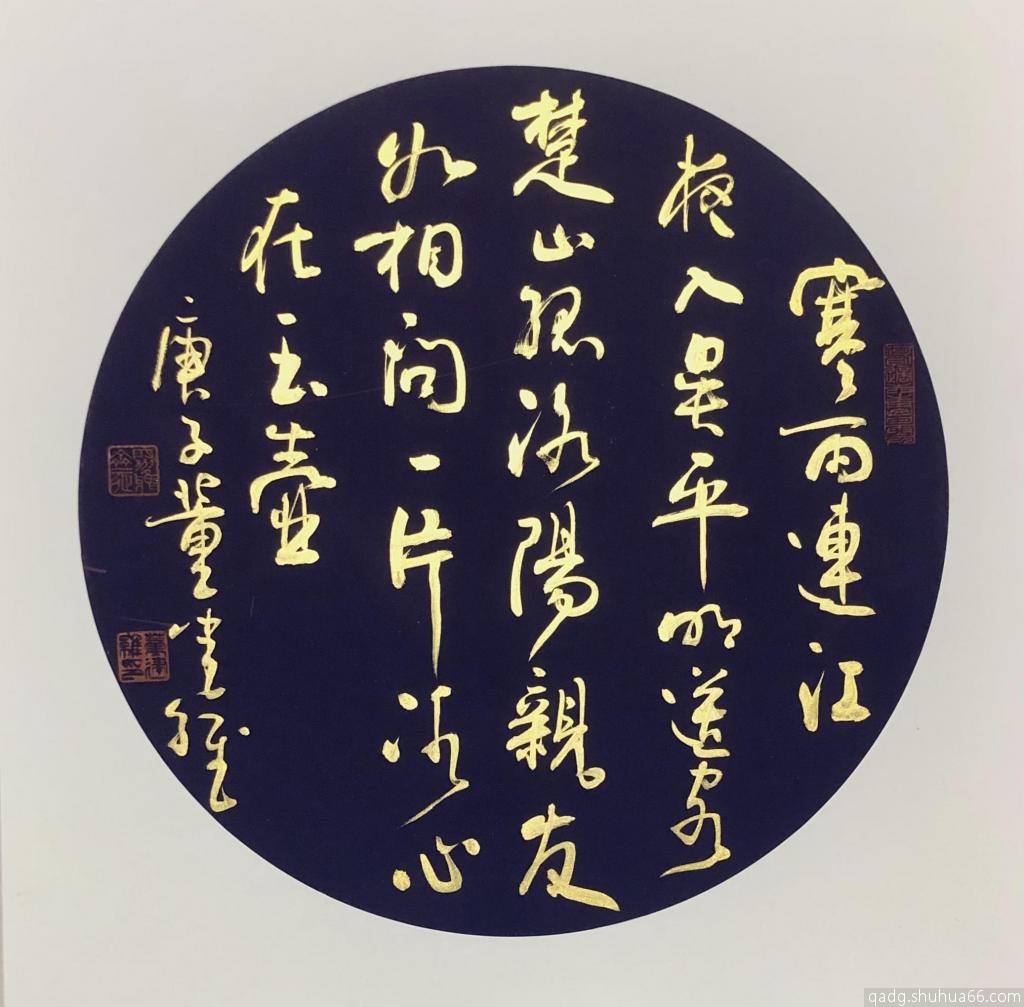 寒雨連江
夜入吴平明送客
楚山孤洛陽親友
如相问一片冰心
在玉壺
庚子董建雄
qadg.shuhua66.com